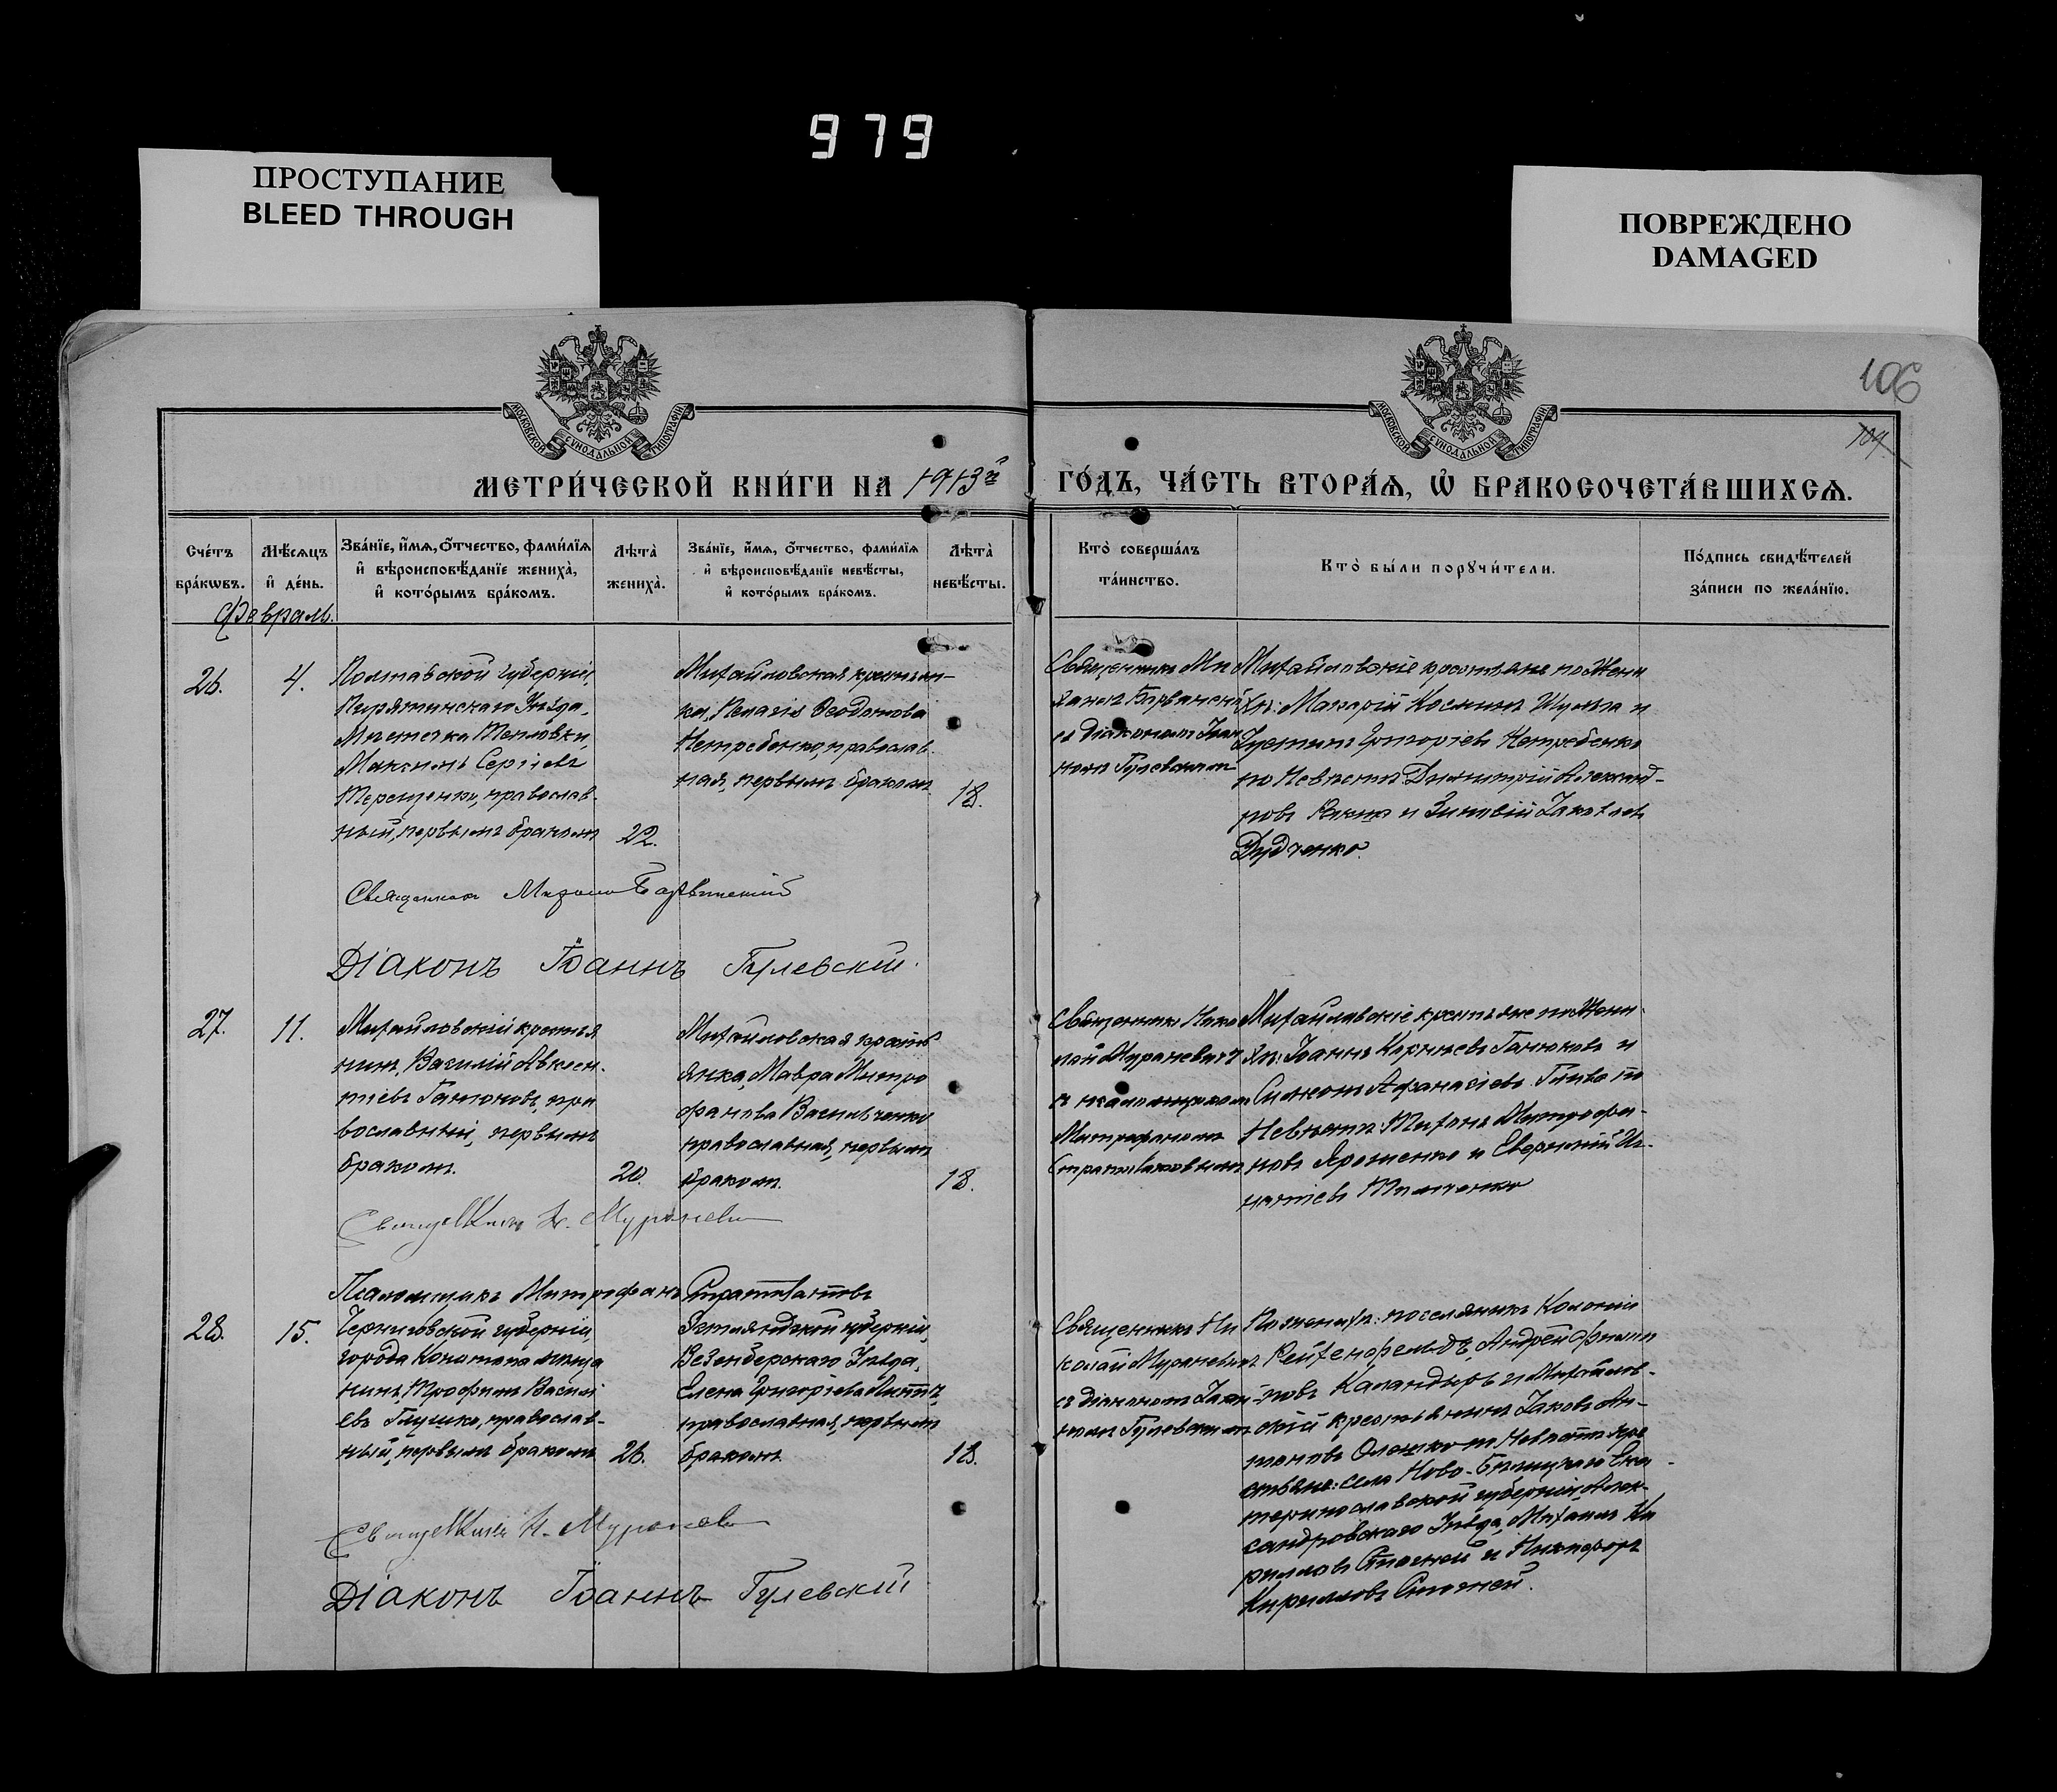 979
ПРОСТУПАНИЕ
BLEED THROUGH
ПОВРЕЖДЕНО
DAMAGED
106
104
МОСКОВСКОЙ СѴНОДАЛЬНОЙ ТИПОГРАФІИ
МОСКОВСКОЙ СѴНОДАЛЬНОЙ ТИПОГРАФІИ
МЕТРИ́ЧЕСКОЙ КНИ́ГИ НА 1913й ГО́ДЪ, ЧА́СТЬ ВТОРА́Ѧ, Ѡ҆ БРАКОСОЧЕТА́ВШИХСѦ.
Сче́тъ бра́кѡвъ.
Мѣ́сѧцъ и҆ де́нь.
Зва́нїе, и҆́мѧ, ѻ҆́тчество, фами́лїѧ и҆ вѣроисповѣ́данїе жениха̀, и҆ кото́рымъ бра́комъ.
Лѣта̀ жениха̀.
Зва́нїе, и҆́мѧ, ѻ҆́тчество, фами́лїѧ и҆ вѣроисповѣ́данїе невѣ́сты, и҆ кото́рымъ бра́комъ.
Лѣта̀ невѣ́сты.
Кто̀ соверша́лъ та́инство.
Кто̀ бы́ли порꙋчи́тели.
По́дпись свидѣ́телей за́писи по жела́нїю.
Февраль.
26.
4.
Полтавской губерніи,
Пирятинскаго Уѣзда,
Мѣстечка Тепловки,
Максимъ Сергіевъ
Терещенко, православ-
ный, первымъ бракомъ
22.
Михайловская крестьян-
ка, Пелагія Ѳеодотова
Нетребенко, православ
ная, первымъ бракомъ
18.
Священникъ Ми
съ діакономъ Іоан
номъ Гулевскимъ
Михайловскіе крестьяне по Жени
хѣ: Макарій Косминъ Шульга и
Іустинъ Григоріевъ Нетребенко
по Невѣстѣ Димитрій Александ-
ровъ и Зиновій Іаковлевъ
Дудченко.
Священникъ
Діаконъ Іоаннъ Гулевскій.
27.
11.
Михайловскій крестья
нинъ, Василій Авксен-
тіевъ Ганюковъ, пра
вославный, первымъ
бракомъ.
20.
Михайловская кресть
янка, Мавра Митро
фанова Васильченко
православная, первымъ
бракомъ.
18.
Священникъ Нико
лай Мураневичъ
съ псаломщикомъ
Митрофаномъ
Михайловскіе крестьяне по Жени-
хѣ: Іоаннъ Корнѣевъ Ганюковъ и
Симеонъ Аѳанасіевъ по
Невѣстѣ: Титъ Митрофа-
новъ Ярошенко и Евфимій Иг-
натіевъ
Священникъ Н. Мураневичъ
Псаломщикъ Митрофанъ
28.
15.
Черниговской губерніи,
города Конотопа мѣща
нинъ, Трофимъ Васили
евъ Глушко, православ-
ный, первымъ бракомъ
26.
Эстляндской губерніи,
Везенбергскаго Уѣзда,
Елена Григоріева
православная, первымъ
бракомъ.
18.
Священникъ Ни
колай Мураневичъ
съ діакономъ Іоан-
номъ Гулевскимъ
По женихѣ: поселянинъ Колоніи
Рейхенфельдъ, Андрей Филип
повъ и Михайлов-
скій крестьянинъ Іаковъ Ан-
тоновъ по Невѣстѣ кре
стьяне: села Ново- Ека-
теринославской губерніи, Алек-
сандровскаго Уѣзда, Михаилъ Ки
рилловъ и Никифоръ
Кирилловъ
Священникъ Н. Мураневичъ
Діаконъ Іоаннъ Гулевскій